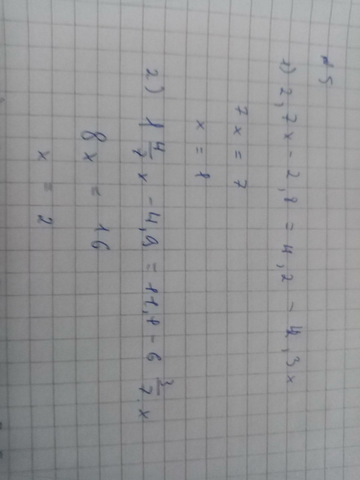 №5
1) 2,7x - 2,8 = 4,2 - 4,3x
7x = 7
x = 1
2) 1 4/7 x - 4,9 = 11,1 - 6 3/7 x
8x = 16
x = 2